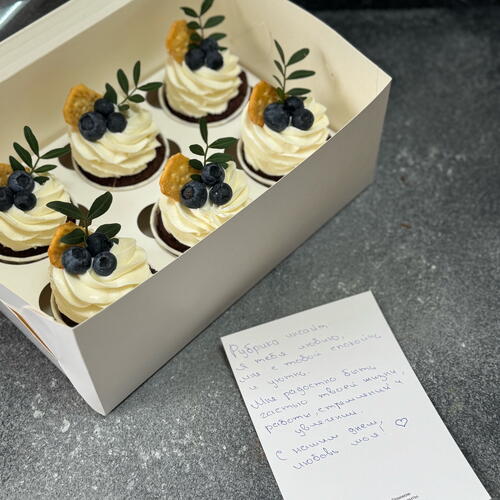 Рубрика инсайт
я тебя люблю,
мне с тобой спокойно
и уютно.
Мне радостно быть
частью твоей жизни,
работы, стремлений и
увлечений.
С нашим днем,
любовь моя! ♡